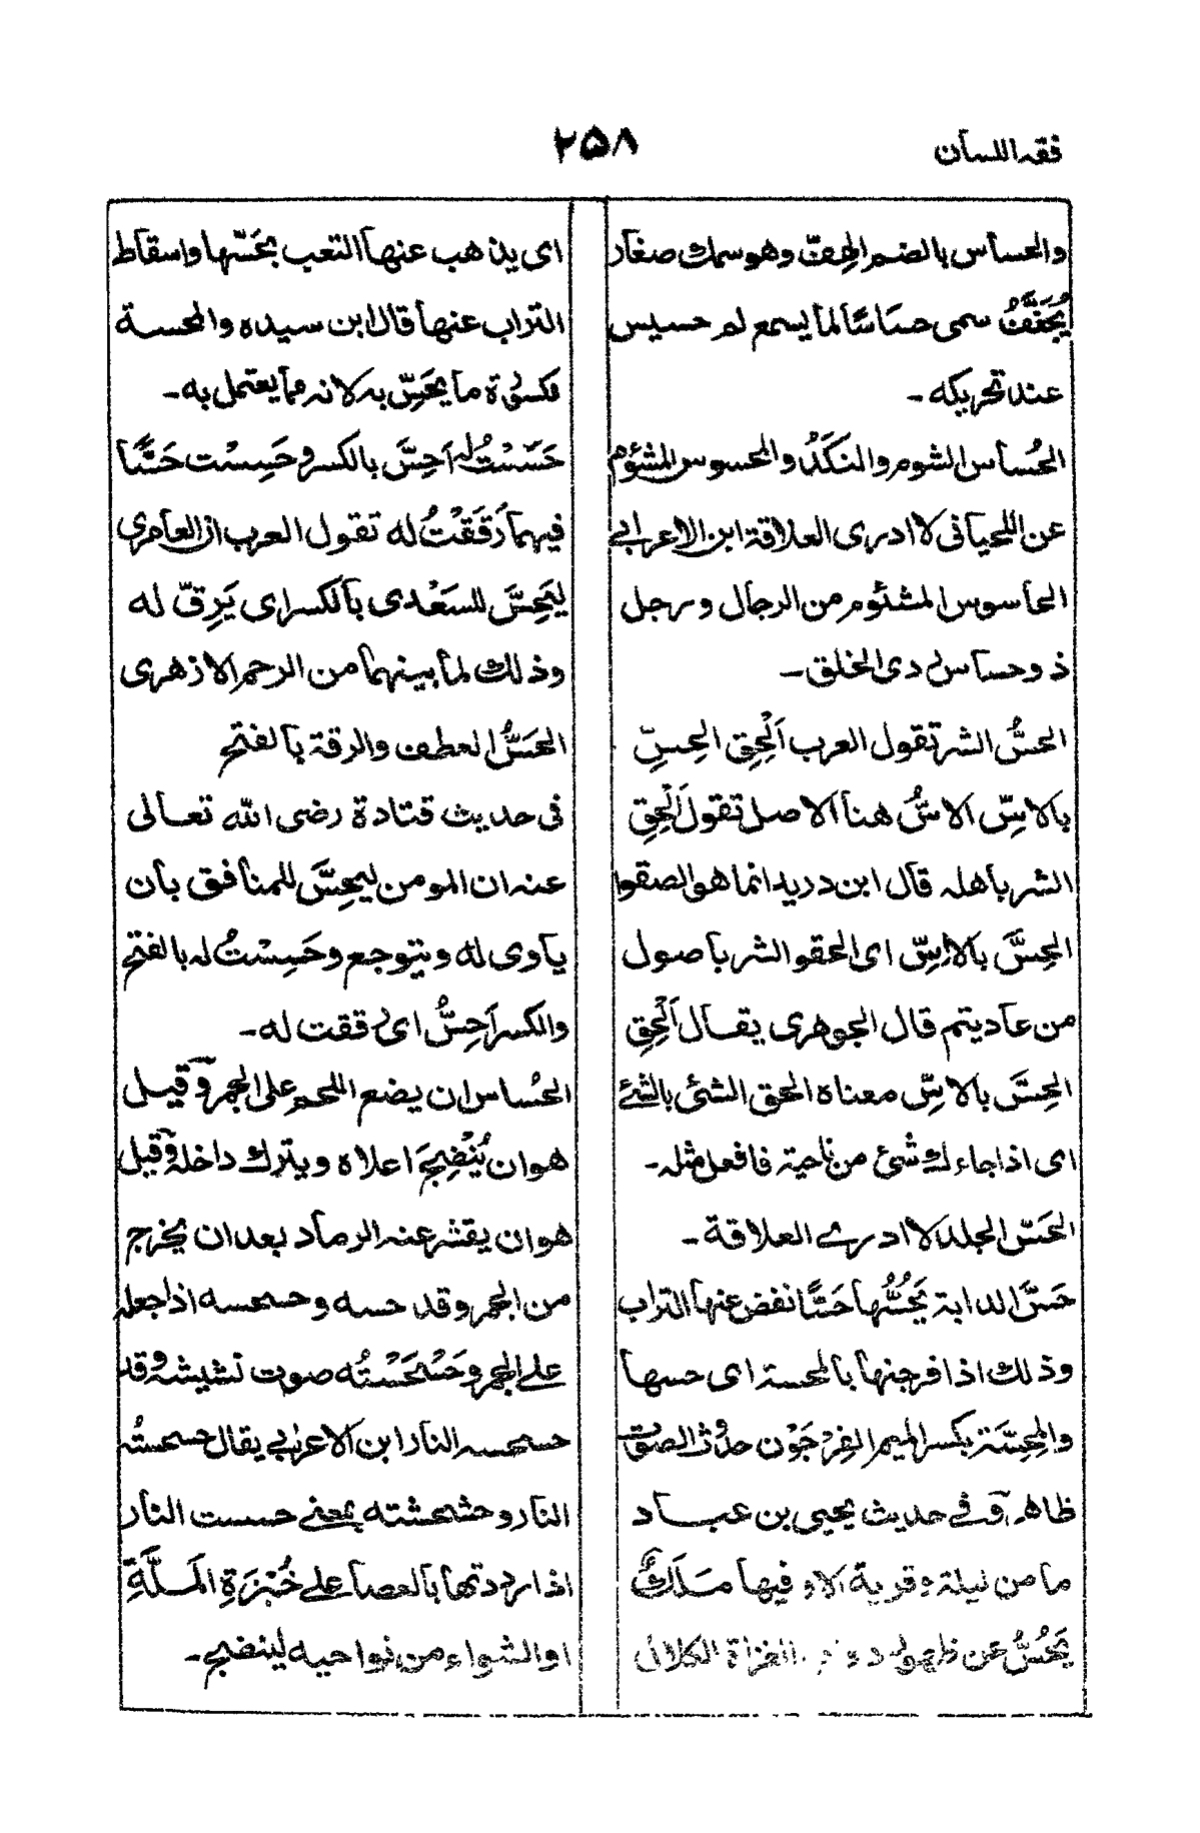 فقه اللسان
۲۵۸
والحساس بالضم الهِفّ وهو سمك صغار
يُجَفَّفُ سمى حسَاسًا لما يسمع له حسيس
عند تحريكه ۔
الحُساس الشوم والنَكَدُ والمحسوس المشئوم
عن اللحيانى لا ادرى العلاقة ابن الاعرابے
الحاسوس المشئوم من الرجال ورجل
ذو حساس ردى الخلق ۔
الحسُّ الشر تقول العرب اَلْحِقِ الحِسِّ
بالاسِّ الاسُّ هنا الاصل تقول اَلْحِقِ
الشر باهله قال ابن دريد انما هو الصقوا
الحِسَّ بالاِسِّ اى الحقو الشر باصول
من عاديتم قال الجوهرى يقال اَلْحِقِ
الحِسَّ بالاسِّ معناه الحق الشئ بالشئے
اى اذا جاءك شئ من ناحية فافعل مثله ۔
الحَسّ الجلد لا ادرے العلاقة ۔
حَسَّ الدابة يَحُسُّها حَسًّا نفض عنها التراب
وذلك اذا فرجنها بالمحسة اى حسها
والمِحِسَّة بكسر الميم الفِرْجَوْن حدوث الصوت
ظاهر وفے حديث يحيى بن عباد
ما من ليلة او قرية الا وفيها مَلَكٌ
يَحُسُّ عن ظهور دواب الغزاة الكلال
اى يذهب عنها التعب بحَسّها واسقاط
التراب عنها قال ابن سيده والمحسة
مكسورة ما يحَسِّ به لانه مما يعتمل به ۔
حَسَسْتُ له اَحِسَّ بالكسر وحَسِسْت حَسًّا
فيهما رَقَقْتُ له تقول العرب ان العامرى
ليَحِسَّ للسَعْدى بالكسر اى يَرِقّ له
وذلك لما بينهما من الرحم الازهرى
الحَسُّ العطف والرقة بالفتح
فى حديث قتادة رضى الله تعالى
عنه ان المومن ليحِسَّ للمنافق بان
ياوى له ويتوجع وحَسِسْتُ له بالفتح
والكسر اَحِسُّ اى رققت له ۔
الحُساس ان يضع اللحم على الجمر وقيل
هو ان يُنْضِجَ اعلاه ويترك داخله وقيل
هو ان يقشر عنه الرماد بعد ان يخرج
من الجمر وقد حسه وحسحسه اذا جعله
علے الجمر وحَسْحَسْتُه صوت نشيشه وقد
حسحسه النار ابن الاعرابے يقال حسحستُه
النار وحشحشته بمعنے حسست النار
اذا رددتها بالعصا علے خُبْزَةِ المَلَّةِ
او الشواء من نواحيه لينضج ۔